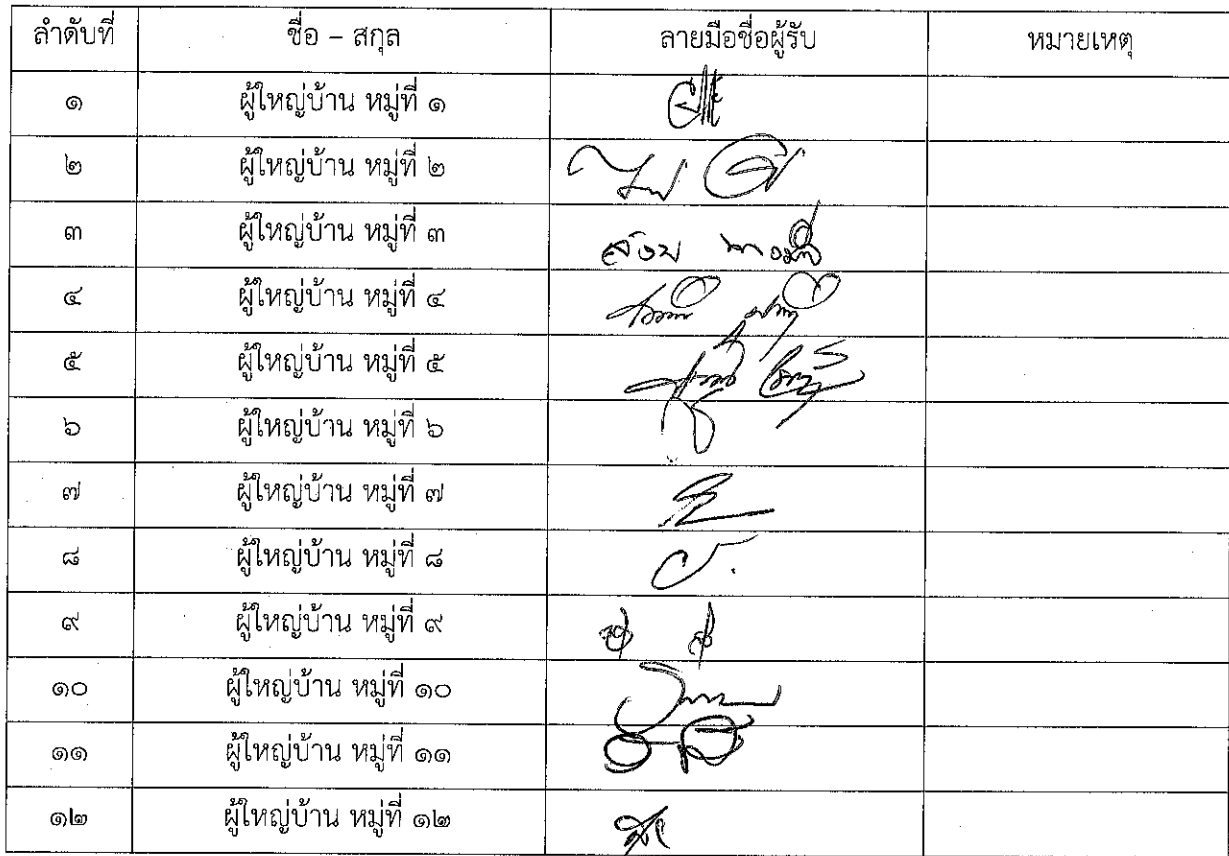 ลำดับที่ ชื่อ – สกุล ลายมือชื่อผู้รับ หมายเหตุ
๑ ผู้ใหญ่บ้าน หมู่ที่ ๑
๒ ผู้ใหญ่บ้าน หมู่ที่ ๒
๓ ผู้ใหญ่บ้าน หมู่ที่ ๓
๔ ผู้ใหญ่บ้าน หมู่ที่ ๔
๕ ผู้ใหญ่บ้าน หมู่ที่ ๕
๖ ผู้ใหญ่บ้าน หมู่ที่ ๖
๗ ผู้ใหญ่บ้าน หมู่ที่ ๗
๘ ผู้ใหญ่บ้าน หมู่ที่ ๘
๙ ผู้ใหญ่บ้าน หมู่ที่ ๙
๑๐ ผู้ใหญ่บ้าน หมู่ที่ ๑๐
๑๑ ผู้ใหญ่บ้าน หมู่ที่ ๑๑
๑๒ ผู้ใหญ่บ้าน หมู่ที่ ๑๒